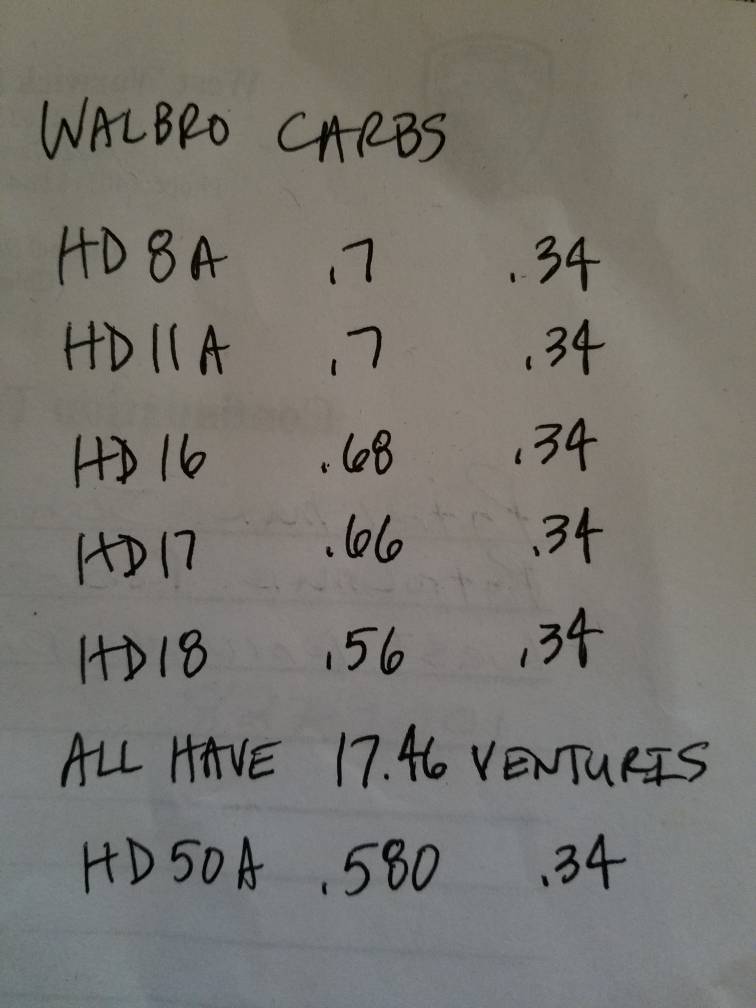 WALBRO CARBS
HD 8A .7 .34
HD 11A .7 .34
HD 16 .68 .34
HD 17 .66 .34
HD 18 .56 .34
ALL HAVE 17.46 VENTURIS
HD 50A .580 .34